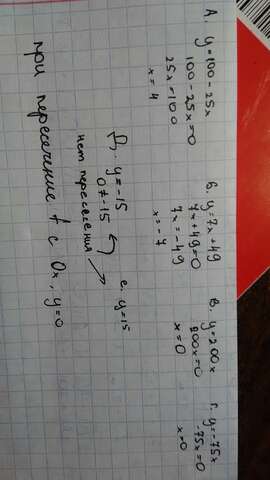 А. y=100-25x
100-25x=0
25x=100
x=4
б. y=7x+49
7x+49=0
7x=-49
x=-7
В. y=200x
200x=0
x=0
г. y=-75x
-75x=0
x=0
Д. y=-15
0≠-15
нет пересесения
е. y=15
при пересечение + с Ox, y=0